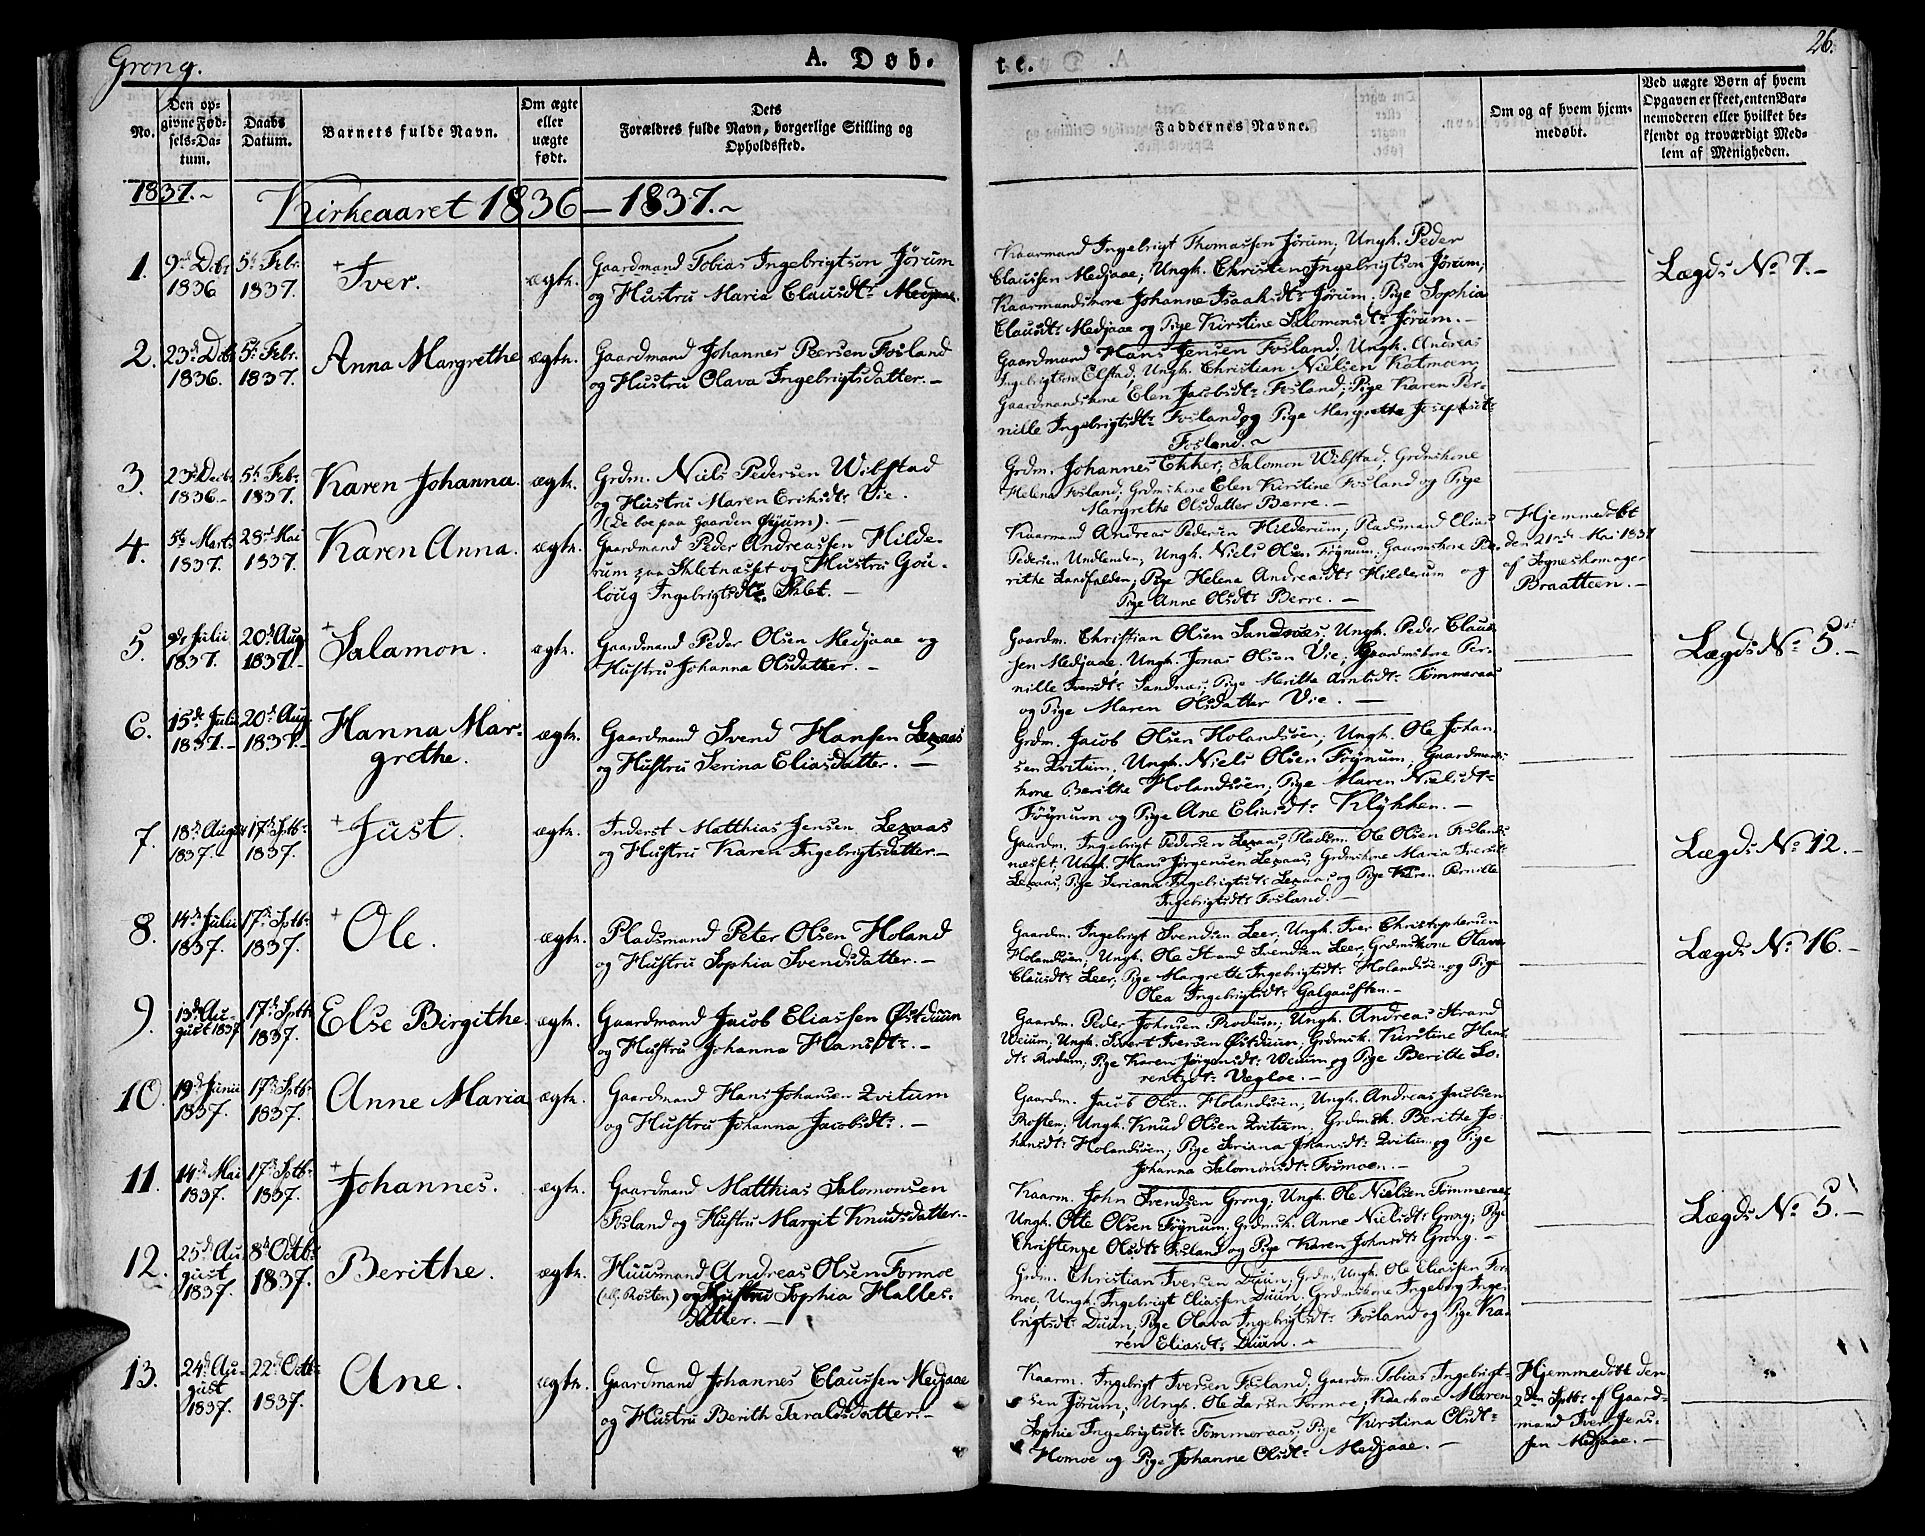 Grong.
A. Døb-
te.
26.
No.
Den op-
givne Fød-
sels-Da-
tum.
Daabs
Datum.
Barnets fulde Navn.
Om ægte
eller
uægte
født.
Dets
Forældres fulde Navn, borgerlige Stilling og
Opholdsted.
Faddernes Navne.
Om og af hvem hjem-
medøbt.
Ved uægte Børn af hvem
Opgaven er skeet, enten Bar-
nemoderen eller hvilket be-
kjendt og troværdigt Med-
lem af Menigheden.
1837.~
Kirkeaaret 1836 – 1837.~
1.
9nd Debr
1836
5t Febr.
1837.
+ Iver.
ægte.
Gaardmand Tobias Ingebrigtson Jørum
og Hustru Maria Clausdtr Medjaae.
Kaarmand Ingebrigt Thomassen Jørum; Ungk. Peder
Claussen Medjaae; Ungk. Christen Ingebrigtson Jørum;
Kaarmandskone Johanna Isaaksdtr Jørum; Pige Sophia
Clausdtr Medjaae og Pige Kirstine Salomonsdtr Jørum. –
Lægds No 7. –
2.
23d Debr
1836.
5t Febr.
1837.
Anna Margrethe
ægte.
Gaardmand Johannes Peersen Fosland
og Hustru Olava Ingebrigtsdatter. –
Gaardmand Hans Jensen Fosland; Ungk. Andreas
Ingebrigtson Elstad; Ungk. Christian Nielsen Katmoen;
Gaardmandskone Elen Jacobsdtr Fosland; Pige Karen Per-
nille Ingebrigtsdtr Fosland og Pige Margrethe Josephsdtr
Fosland. ~
3.
23d Decbr
1836. –
5t Febr.
1837.
Karen Johanna.
ægte.
Grdm. Niels Pedersen Wibstad
og Hustru Maren Eriksdtr Vie.
(De boe paa Gaarden Øyum). –
Grdm. Johannes Ekker; Salomon Wibstad; Grdmkone
Helena Fosland; Grdmskone Elen Kirstine Fosland og Pige
Margrethe Olsdatter Berre. –
4.
5t Marts
1837.
28d Mai
1837.
Karen Anna.
ægte.
Gaardmand Peder Andreassen Hilde-
rum paa Skletnæsset og Hustru Gou-
loug Ingebrigtsdtr Sklet. –
Kaarmand Andreas Pedersen Hilderum; Pladsmand Elias
Pedersen Undlenden; Ungk. Niels Olsen Føynum; Gaarmskone Be-
rithe Landfalden; Pige Helena Andreasdtr Hilderum og
Pige Anne Olsdtr Berre. –
Hjemmedøbt
den 21nde Mai 1837
af Sogneskomager
Braatteen. –
5.
Julii
1837.
20d Aug
1837. –
+ Salamon.
ægte.
Gaardmand Peder Olsen Medjaae og
Hustru Johanna Olsdatter. –
Gaardm. Christian Olsen Sandnæs; Ungk. Peder Claus-
sen Medjaae; Ungk. Jonas Olsen Vie; Gaardmskone Per-
nille Svendtr Sandnæs; Pige Meritte Arntsdtr Tømmeraas
og Pige Maren Olsdatter Vie. –
Lægds No 5. –
6.
15de Julii
1837. –
20d Aug.
1837. –
Hanna Mar-
grethe.
ægte.
Gaardmand Svend Hansen Lexaas
og Hustru Serina Eliasdatter. –
Grdm. Jacob Olsen Holandsøen; Ungk. Ole Johan-
sen Qvitum; Ungk. Niels Olsen Føynum; Gaardmands-
kone Berithe Holandsøen; Pige Maren Nielsdtr
Føynum og Pige Ane Eliasdtr Klykken. –
7.
18d August
1837.
17d Sptbr
1837.
+ Just.
ægte.
Inderst Matthias Jensen Lexaas
og Hustru Karen Ingebrigtsdatter. –
Gaardm. Ingebrigt Pedersen Lexaas; Pladsm. Ole Olsen Foslands-
næsset; Ungk. Hans Jørgensen Lexaas; Grdmskone Maria Iversdtr
Lexaas; Pige Seriana Ingebrigtsdtr Lexaas og Pige Karen Pernille
Ingebrigtsdtr Fosland. –
Lægds No 12. –
8.
14d Julii
1837.
17d Sptbr
1837.
+ Ole.
ægte.
Pladsmand Peter Olsen Holand
og Hustru Sophia Svendsdatter. –
Gaardm. Ingebrigt Svendsen Leer; Ungk. Iver Christophersen
Holandsøen; Ungk. Ole Strand Svendsen Leer; Grdmskone Olava
Clausdtr Leer; Pige Margrethe Ingebrigtsdtr Holandsøen og Pige
Olea Ingebrigtsdtr Galgauften. –
Lægds No 16. –
9.
13d Au-
gust 1837
17d Sptbr
1837.
Else Birgithe.
ægte.
Gaardmand Jacob Eliassen Østduun
og Hustru Johanna Hansdtr. –
Gaardm. Peder Johnsen Rodum; Ungk. Andreas Strand
Weium; Ungk. Sivert Iversen Østduun; Grdmsk. Kirstine Hans-
dtr Rodum; Pige Karen Jørgensdtr Weium og Pige Berithe Lo-
rentzdtr Vegloe. –
10.
19d Junii
1837.
17d Sptbr
1837.
Anne Maria
ægte.
Gaardmand Hans Johansen Qvitum
og Hustru Johanna Jacobsdtr. –
Gaardm. Jacob Olsen Holandsøen; Ungk. Andreas Jacobsen
Rosten; Ungk. Knud Olsen Qvitum; Grdmsk. Berithe Jo-
hansdtr Holandsøen; Pige Seriana Johansdtr Qvitum og Pige
Johanna Salomonsdtr Fosmoen. –
11.
14d Mai
1837.
17d Sptbr
1837.
+ Johannes.
ægte.
Gaardmand Matthias Salomonsen
Fosland og Hustru Margit Knudsdatter. –
Kaarm. John Svendsen Grong; Ungk. Ole Nielsen Tømmeraas;
Ungk. Otte Olsen Føynum; Grdmsk. Anne Nielsdtr Grong; Pige
Christenze Olsdtr Fosland og Pige Karen Johnsdtr Grong. –
Lægds No 5. –
12.
25d Au-
gust
1837.
8d Octbr
1837.
Berithe.
ægte.
Huusmand Andreas Olsen Formoe
(Rosten) og Hustru Sophia Halles-
datter. –
Grdm. Christian Iversen Duun; Ungk. Ole Eliassen For-
moe; Ungk. Ingebrigt Eliassen Duun; Grdmskone Ingeborg Inge-
brigtsdtr Duun; Pige Olava Ingebrigtsdtr Fosland og Pige Ka-
ren Eliasdtr Duun. –
13.
24d Au-
gust
1837.
22d Octbr
1837.
Ane.
ægte.
Gaardmand Johannes Claussen Medjaae
og Hustru Berith Taraldsdatter. –
Kaarm. Ingebrigt Iversen Fosland; Gaardm. Tobias Ingebrigt-
sen Jørum; Ungk. Ole Larsen Formoe; Kaarkone Maren
Sophie Ingebrigtsdtr Tømmeraas; Pige Kirstina Olsdtr
Homoe og Pige Johanne Olsdtr Medjaae. –
Hjemmedøbt den
2den Sptbr af Gaard-
mand Iver Jens-
sen Medjaae. –